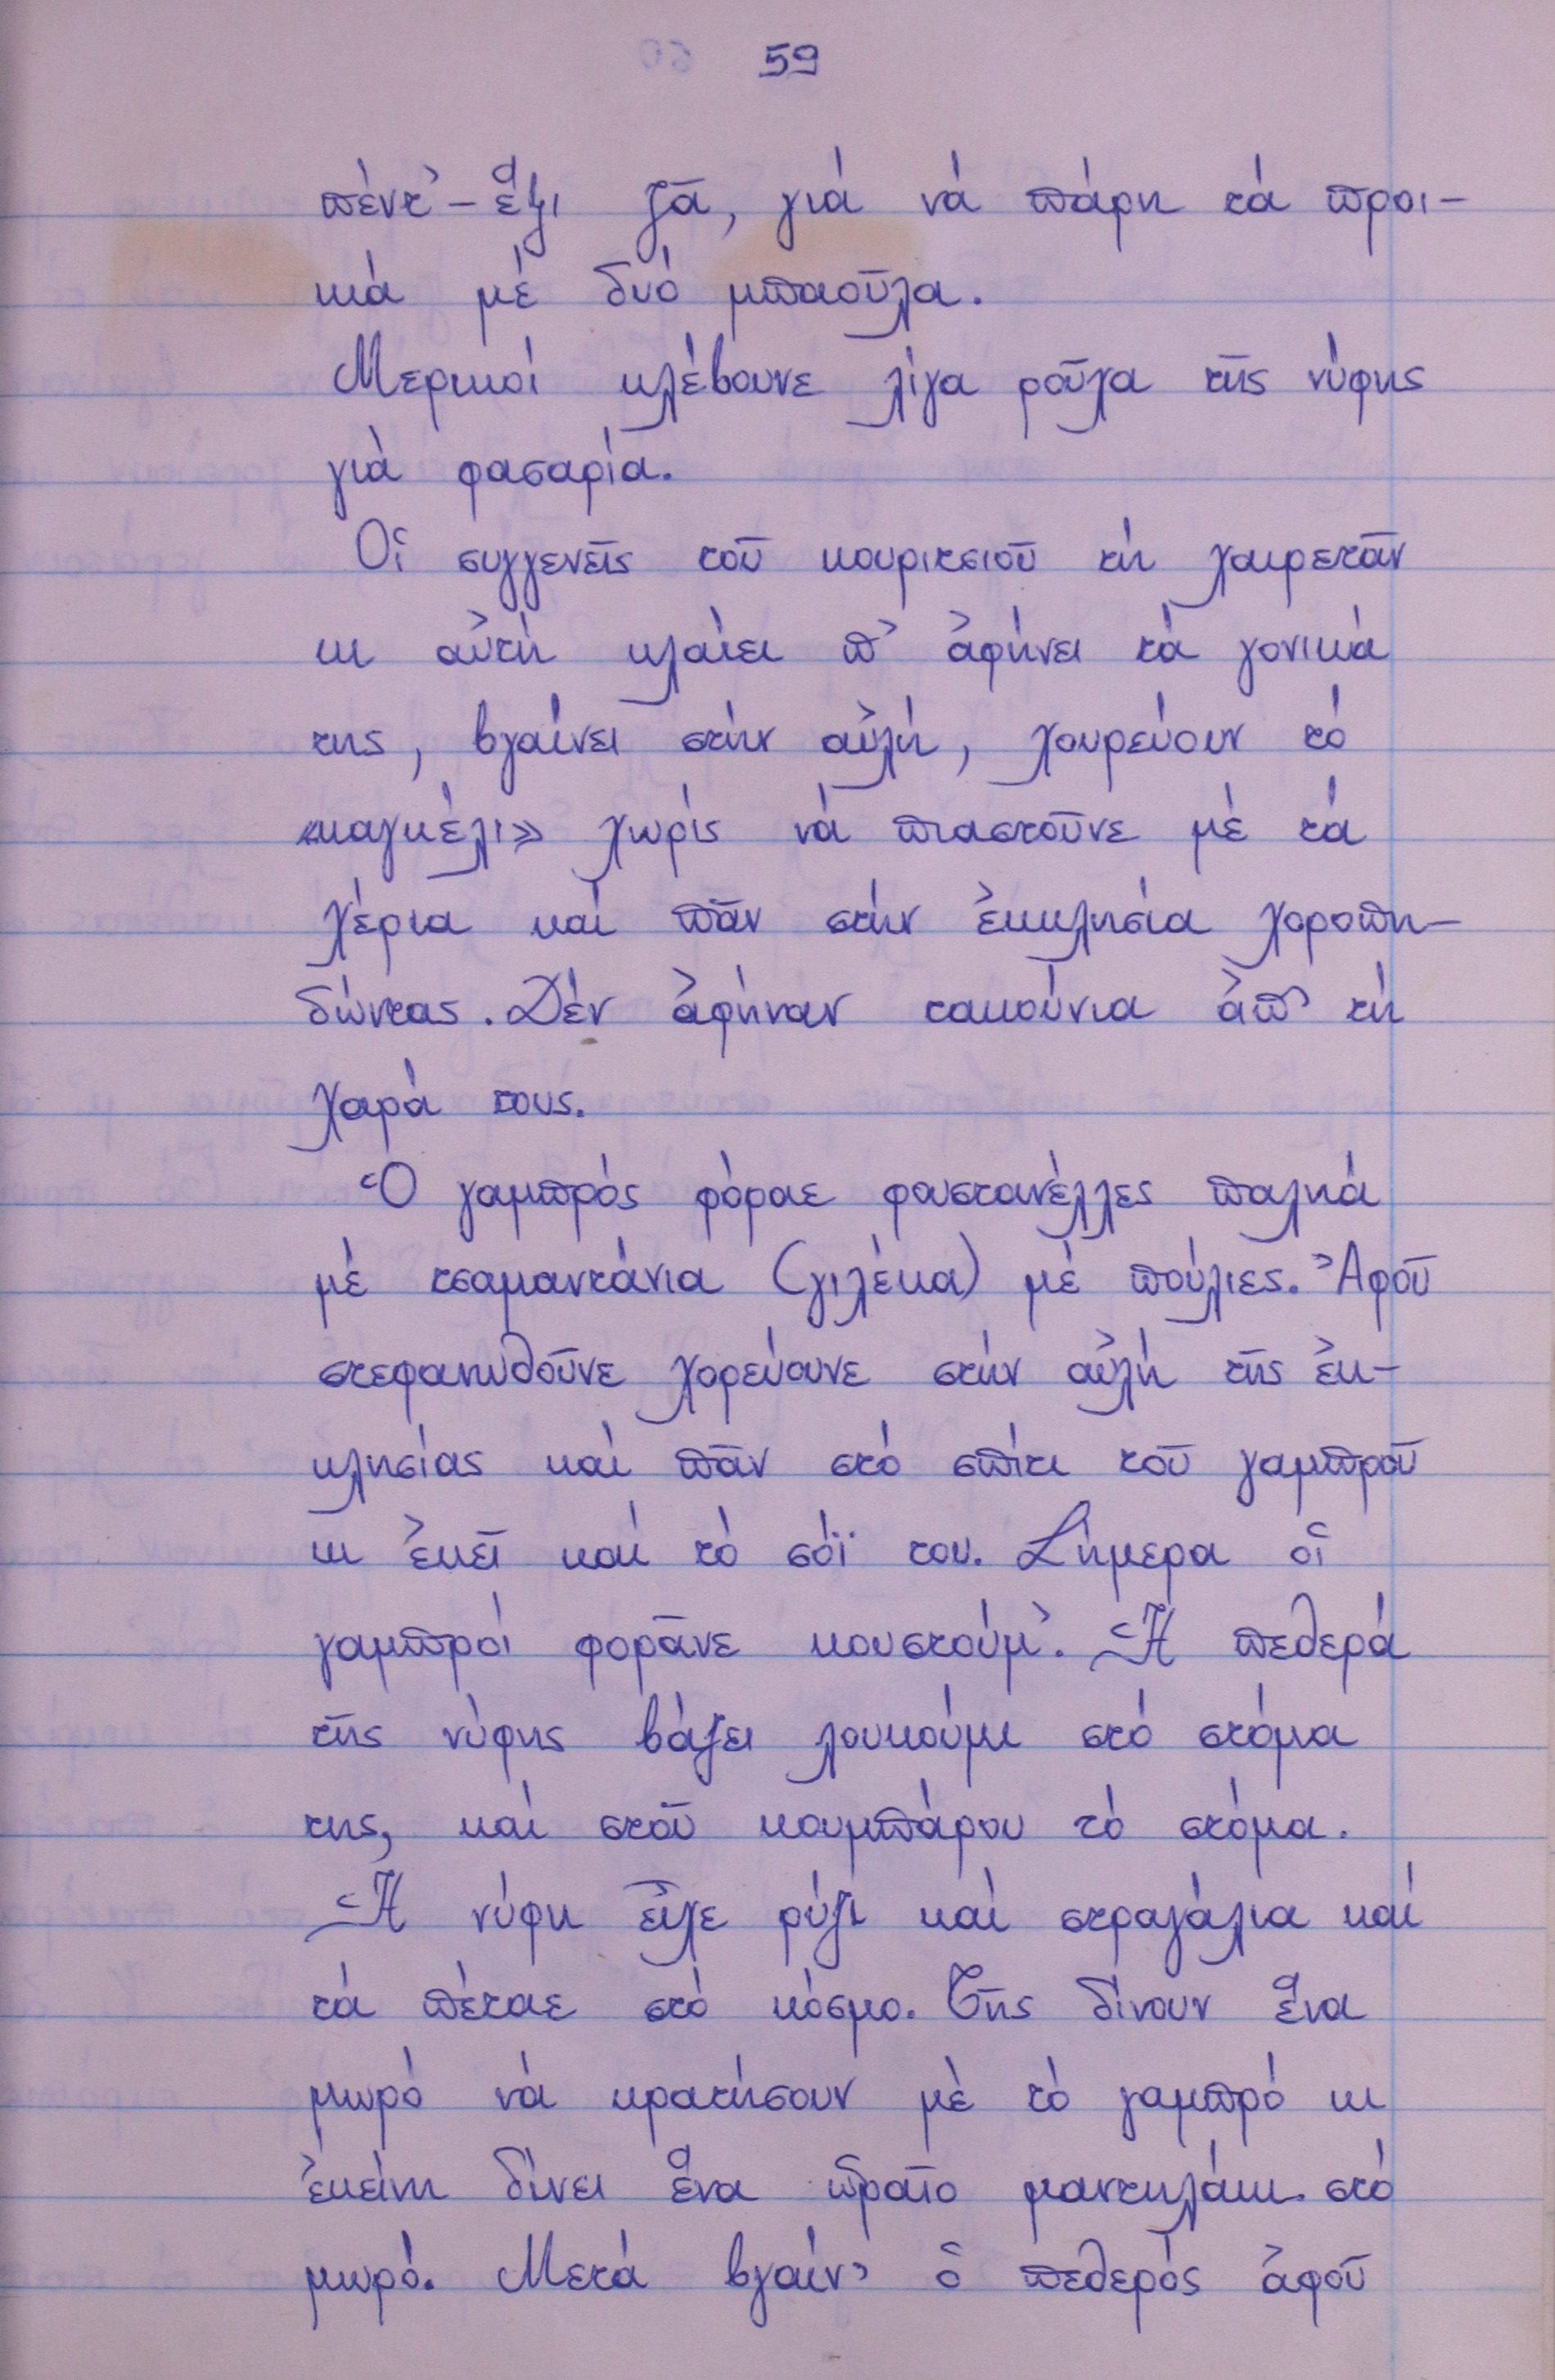 59
πέντ᾽ - ἕξι ζᾶ, γιά νά πάρη τά προι-
κιά μέ δυό μπαοῦλα.
Μερικοί κλέβουνε λίγα ροῦχα τῆς νύφης
γιὰ φασαρία.
Οἱ συγγενεῖς τοῦ κουριτσιοῦ τή χαιρετᾶν
κι αὐτή κλαίει π᾽ ἀφήνει τά γονικά
της, βγαίνει στήν αὐλή, χουρεύουν τό
«καγκέλι» χωρίς νά πιαστοῦνε μέ τά
χέρια καί πᾶν στήν ἐκκλησία χοροπη-
δώντας. Δέν ἀφήναν τακούνια ἀπ᾽ τή
χαρά τους.
Ὁ γαμπρός φόραε φουστανέλλες παληά
μέ τσαμαντάνια (γιλέκα) μέ πούλιες. Ἀφοῦ
στεφανωθοῦνε χορεύουνε στήν αὐλή τῆς ἐκ-
κλησίας καί πᾶν στό σπίτι τοῦ γαμπροῦ
κι ἐκεῖ καί τό σόϊ του. Σήμερα οἱ
γαμπροί φορᾶνε κουστούμ᾽. Ἡ πεθερά
τῆς νύφης βάζει λουκούμι στό στόμα
της, καί στοῦ κουμπάρου τό στόμα.
Ἡ νύφη εἶχε ρύζι καί στραγάλια καί
τά πέταε στό κόσμο. Τῆς δίνουν ἕνα
μωρό νά κρατήσουν μέ τό γαμπρό κι
ἐκείνη δίνει ἕνα ὡραῖο μαντηλάκι στό
μωρό. Μετά βγαίν᾽ ὁ πεθερός ἀφοῦ